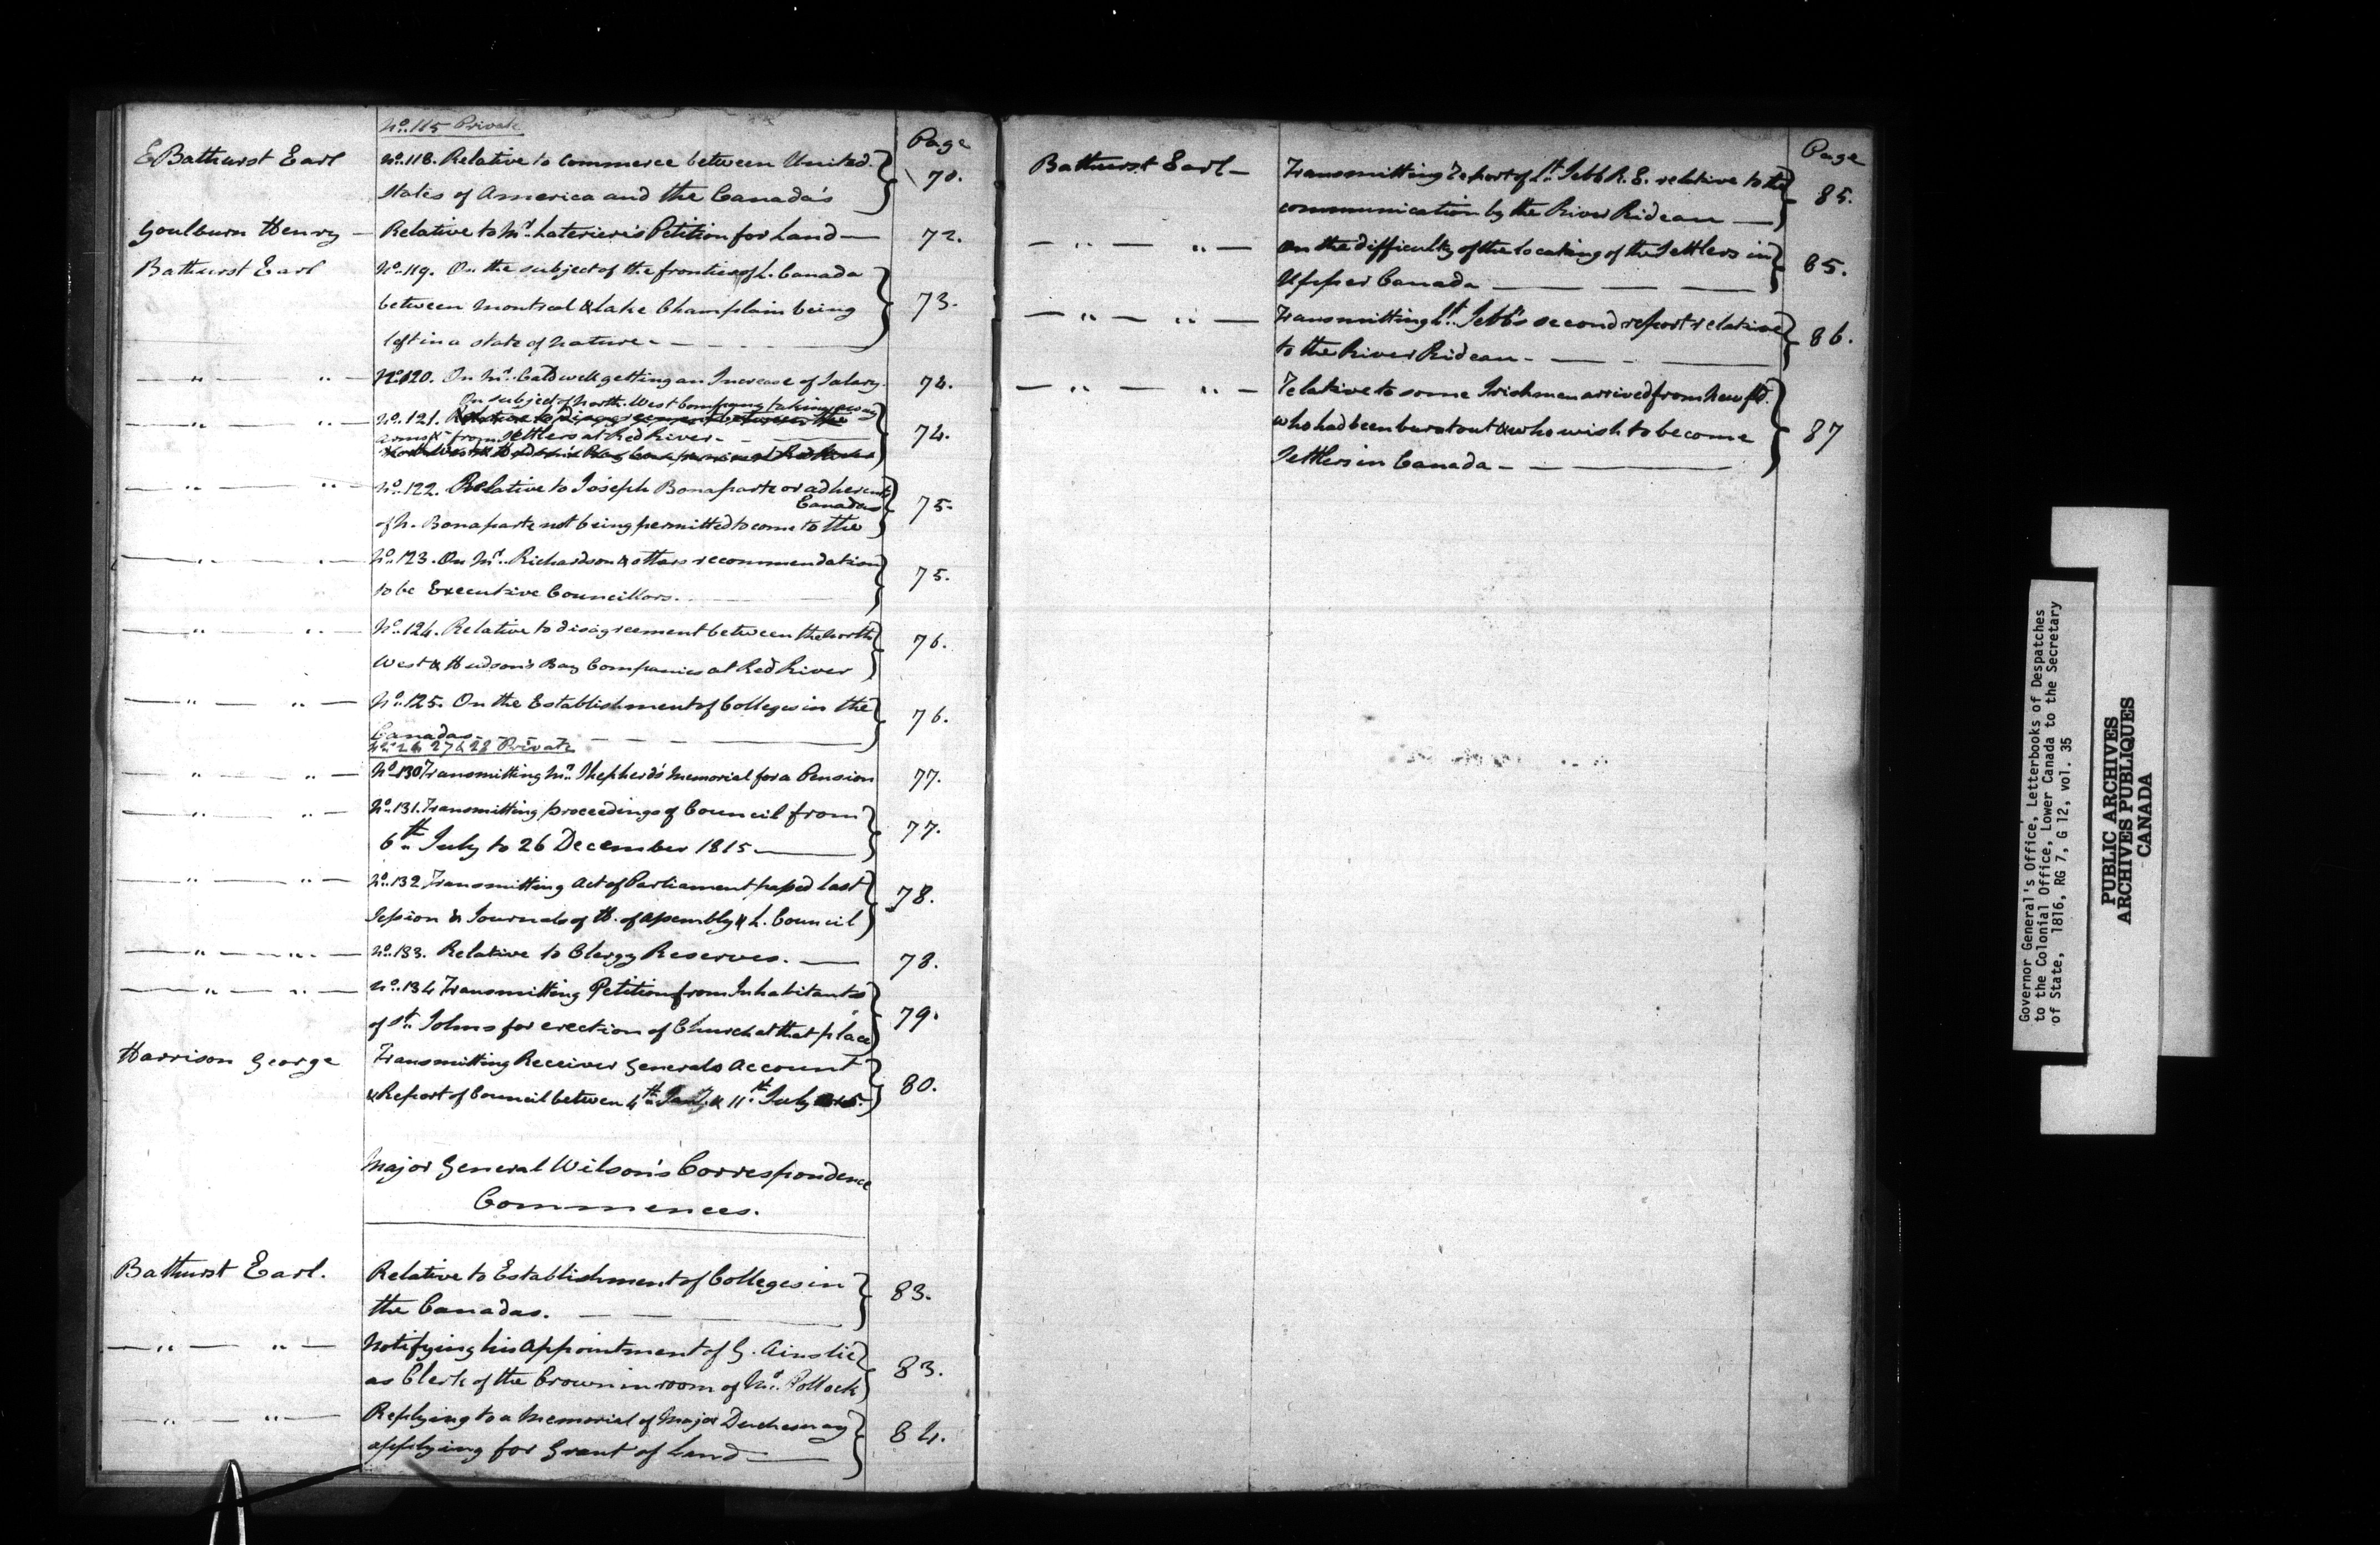 No. 115 Private
Page
E Bathurst Earl No. 118. Relative to Commerce between United
States of America and the Canada's 70.
Goulburn Henry — Relative to Mr. Lateriere's Petition for Land — 72.
Bathurst Earl No. 119. On the subject of the frontier of L. Canada
between Montreal & Lake Champlain being 73.
left in a state of nature -
— " — " — No. 120. On Mr. Caldwell getting an Increase of Salary. 74.
On subject of North West Company taking away
— " — " — No. 121. Relative to disagreement between the
arms &c from settlers at Red River - 74.
North West & Hudson's Bay Companies at Red River
— " — " — No. 122. Relative to Joseph Bonaparte or adherents
Canadas 75.
of N. Bonaparte not being permitted to come to the
— " — " — No. 123. On Mr. Richardson & others recommendation
to be Executive Councillors. 75.
— " — " — No. 124. Relative to disagreement between the North
West & Hudson's Bay Companies at Red River 76.
— " — " — No. 125. On the Establishment of Colleges in the
Canadas 76.
No. 26 27 & 28 Private
— " — " — No. 130 Transmitting Mr. Shepherd's Memorial for a Pension 77.
— " — " — No. 131. Transmitting proceedings of Council from
6th July to 26 December 1815 — 77.
— " — " — No. 132 Transmitting Act of Parliament passed last
Session & Journals of H. of Assembly & L. Council 78.
— " — " — No. 133. Relative to Clergy Reserves. — 78.
— " — " — No. 134 Transmitting Petition from Inhabitants
of St. Johns for erection of Church at that place 79.
Harrison George Transmitting Receiver Generals Account
& Report of Council between 4th Jany & 11th July 80.
Major General Wilson's Correspondence
Commences.
Bathurst Earl. Relative to Establishment of Colleges in
the Canadas. — 83.
— " — " — Notifying his Appointment of G. Ainslie
as Clerk of the Crown in room of Mr. Pollock 83.
— " — " — Replying to a Memorial of Major Duchesnay
applying for Grant of Land — 84.
Page
Bathurst Earl — Transmitting Report of Lt. Jebb R. E. relative to the
communication by the River Rideau — 85.
— " — " — On the difficulty of the locating of the Settlers in
Upper Canada — 85.
— " — " — Transmitting Lt. Jebb's second report relative
to the River Rideau - 86.
— " — " — Relative to some Irishmen arrived from Newfd.
who had been burnt out & who wish to become 87
Settlers in Canada -
Governor General's Office, Letterbooks of Despatches
to the Colonial Office, Lower Canada to the Secretary
of State, 1816, RG 7, G 12, vol. 35
PUBLIC ARCHIVES
ARCHIVES PUBLIQUES
CANADA